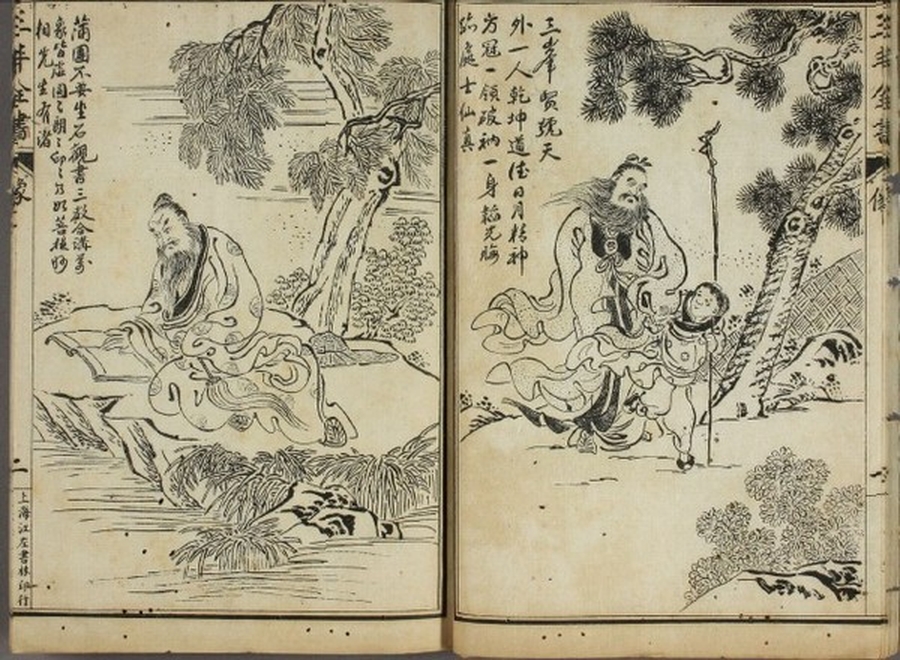 三丰全書
像
三峯賢號天
外一人乾坤道侶日月精神
方冠一領破衲一身韜光晦
跡處士仙真
蒲團不要坐石觀書三教合溝萬
象皆虛圓〻朗〻如菩提妙
相先生有諸
三丰全書
像
上海江左書林印行